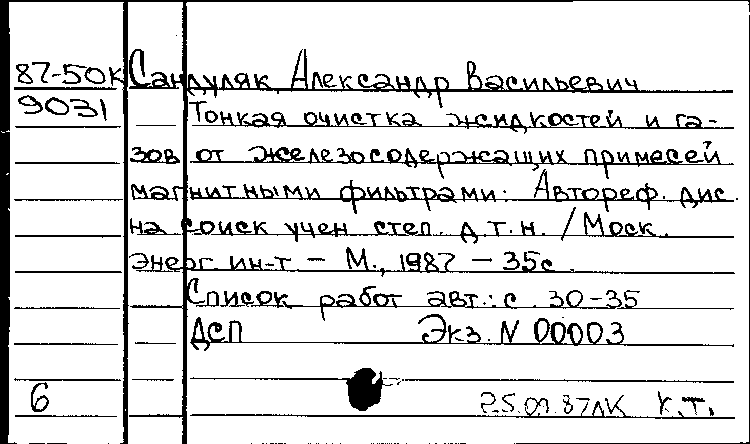 87-50К Сандуляк, Александр Васильевич
9031 Тонкая очистка жидкостей и га-
зов от железосодержащих примесей
магнитными фильтрами: Автореф. дис.
на соиск учен степ. д.т.н. / Моск.
энерг. ин-т – М., 1987 – 35с.
Список работ авт.: с. 30-35
ДСП Экз. N 00003
6 К.Т.